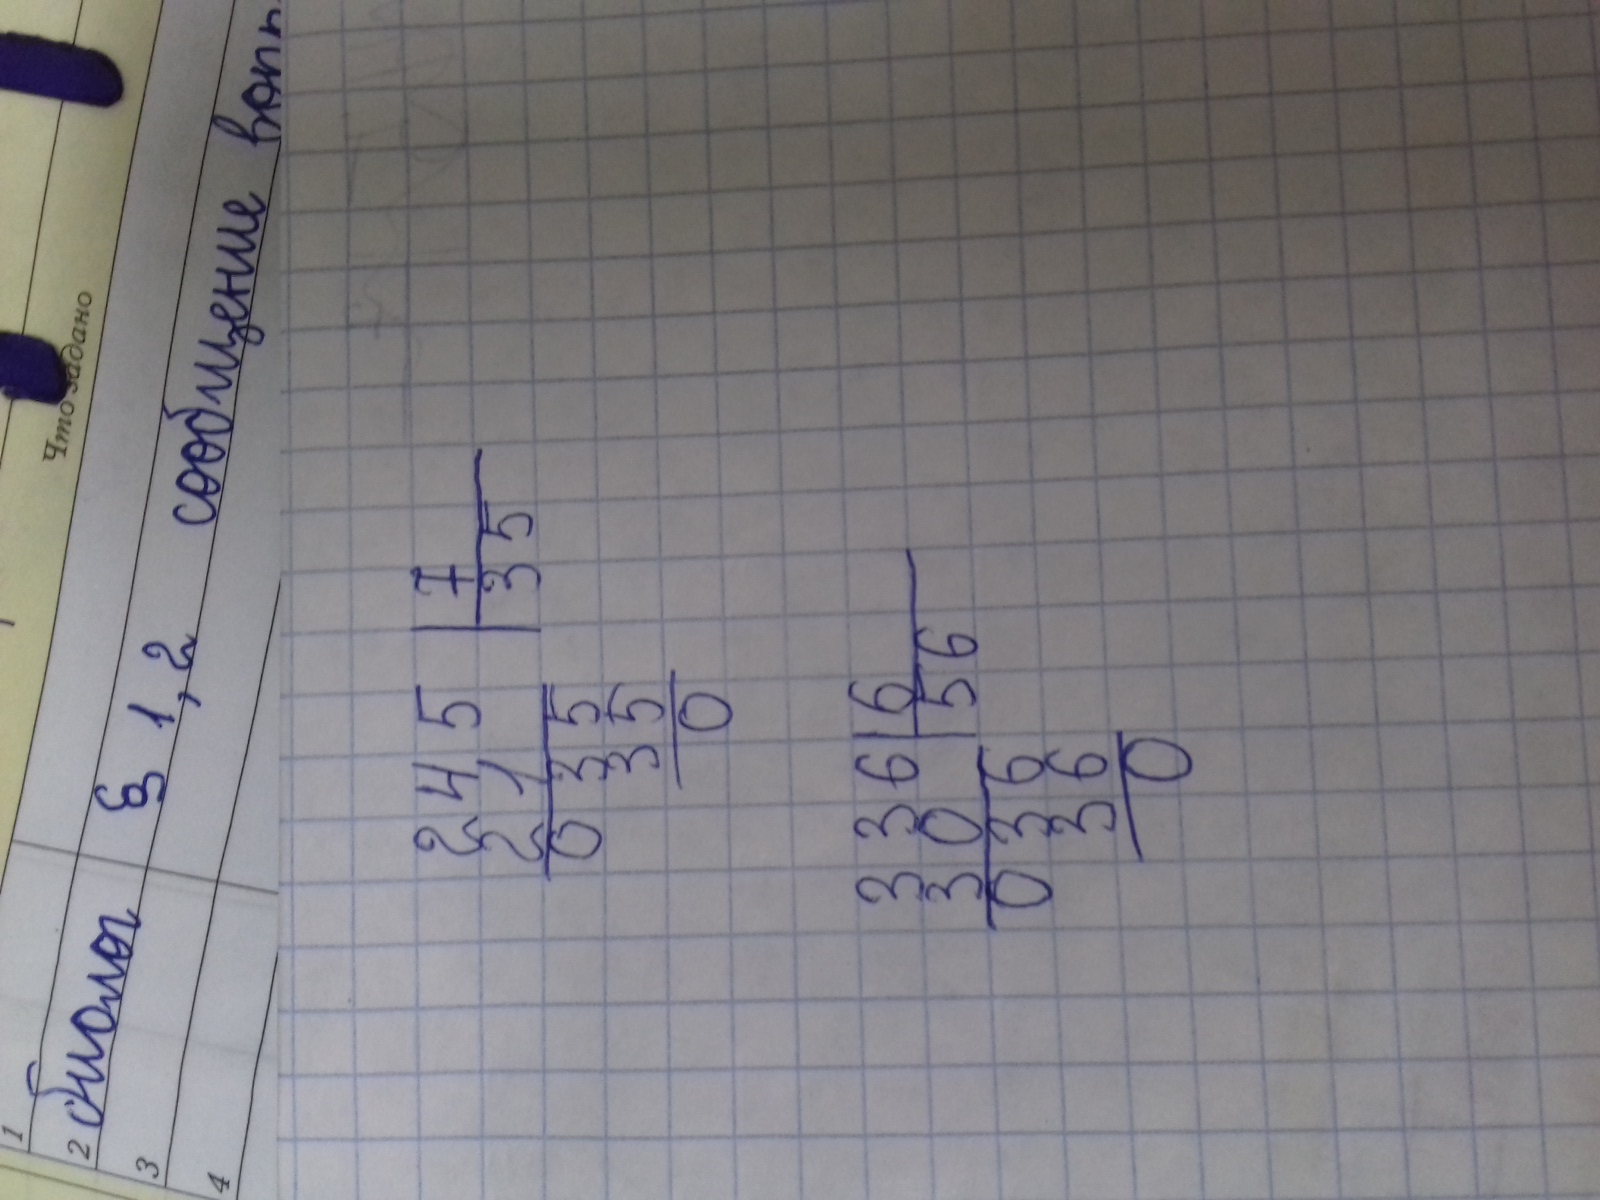 Что задано
1
2 биолог § 1,2
3 сообщение
4
245 | 7
21 | 35
035
35
0
336 | 6
30 | 56
036
36
0